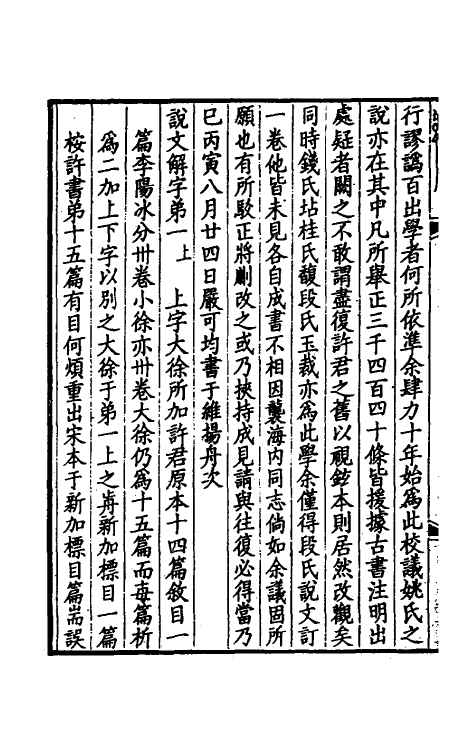 行謬譌百出學者何所依準余肆力十年始爲此校議姚氏之
說亦在其中凡所舉正三千四百四十條皆援據古書注明出
處疑者闕之不敢謂盡復許君之舊以視鉉本則居然改觀矣
同時錢氏坫桂氏馥段氏玉裁亦爲此學余僅得段氏說文訂
一卷他皆未見各自成書不相因襲海内同志倘如余議固所
願也有所駮正將刪改之或乃挾持成見請與往復必得當乃
已丙寅八月廿四日嚴可均書于維揚舟次
說文解字弟一上 上字大徐所加許君原本十四篇敘目一
篇李陽冰分卅卷小徐亦卅卷大徐仍爲十五篇而每篇析
爲二加上下字以別之大徐于弟一上之耑新加標目一篇
桉許書弟十五篇有目何煩重出宋本于新加標目篇耑誤